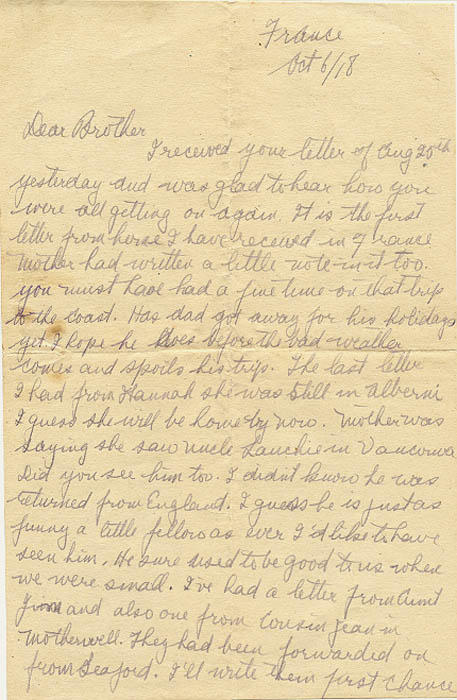 France
Oct 6/18
Dear Brother
I received your letter of Aug 20th
yesterday and was glad to hear how you
were all getting on again. It is the first
letter from home I have received in France
Mother had written a little note in it too.
you must have had a fine time on that trip
to the coast. Has dad got away for his holidays
yet. I hope he does before the bad weather
comes and spoils his trip. The last letter
I had from Hannah she was still in Alberni
I guess she will be home by now. Mother was
saying she saw uncle Lauchie in Vancouver
Did you see him too. I didn't know he was
returned from England. I guess he is just as
funny a little fellow as ever I'd like to have
seen him. He sure used to be good to us when
we were small. I've had a letter from Aunt
and also one from Cousin Jean in
Motherwell. They had been forwarded on
from Seaford. I'll write them first chance